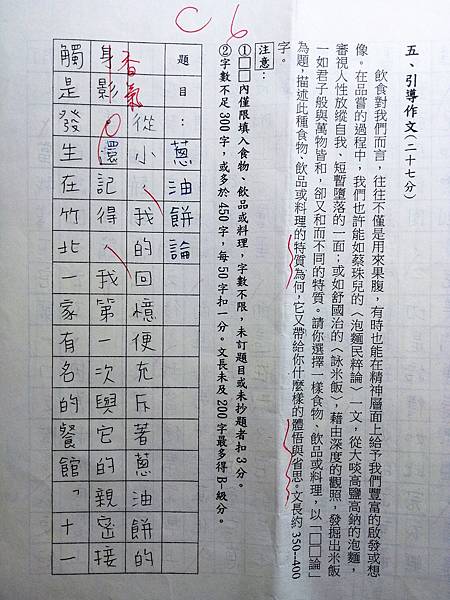 C 6
五、引導作文(二十七分)
飲食對我們而言,往往不僅是用來果腹,有時也能在精神層面上給予我們豐富的啟發或想
像。在品嘗的過程中,我們也許能如蔡珠兒的〈泡麵民粹論〉一文,從大啖高鹽高鈉的泡麵,
審視人性放縱自我、短暫墮落的一面;或如舒國治的〈詠米飯〉,藉由深度的觀照,發掘出米飯
一如君子般與萬物皆和,卻又和而不同的特質。請你選擇一樣食物、飲品或料理,以「□□論」
為題,描述此種食物、飲品或料理的特質為何,它又帶給你什麼樣的體悟與省思。文長約350~400
字。
注意:
①□□內僅限填入食物、飲品或料理,字數不限,未訂題目或未抄題者扣3分。
②字數不足300字,或多於450字,每50字扣一分。文長未及200字最多得B-級分。
題目:蔥油餅論
從小,我的回憶便充斥著蔥油餅的
香氣
身影。還記得,我第一次與它的親密接
觸是發生在竹北一家有名的餐館「十一